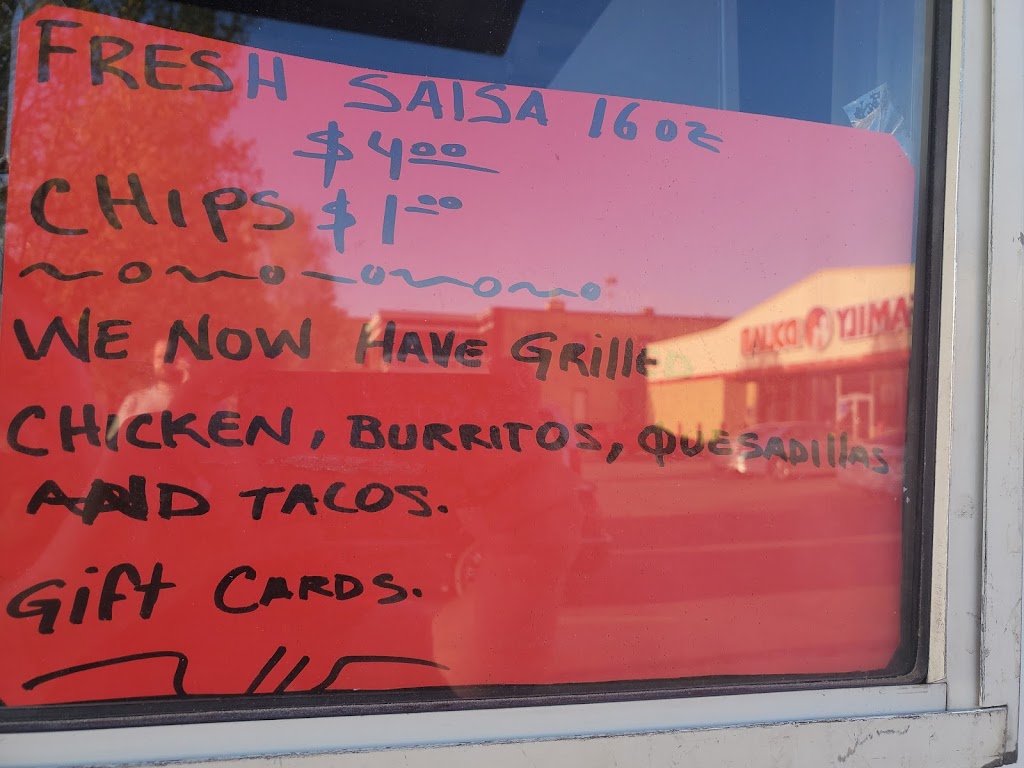 FRESH SALSA 16 oz
$4.00
CHIPS $1.00
WE NOW HAVE GRILLED
CHICKEN, BURRITOS, QUESADILLAS
AND TACOS.
Gift CARDS.